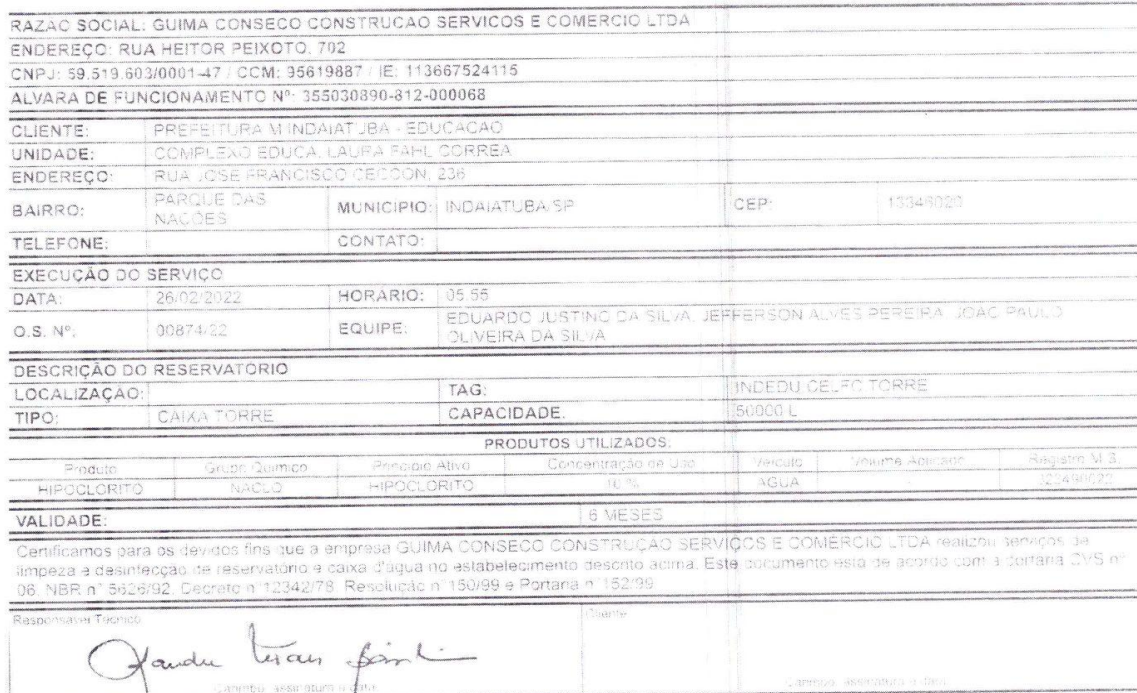 RAZAO SOCIAL: GUIMA CONSECO CONSTRUCAO SERVICOS E COMERCIO LTDA
ENDEREÇO: RUA HEITOR PEIXOTO, 702
CNPJ: 59.519.603/0001-47 / CCM: 95619887 / IE: 113667524115
ALVARA DE FUNCIONAMENTO Nº: 355030890-812-000068
CLIENTE: PREFEITURA M INDAIATUBA - EDUCACAO
UNIDADE: COMPLEXO EDUCA. LAURA FAHL CORREA
ENDEREÇO: RUA JOSE FRANCISCO CECCON, 236
BAIRRO: PARQUE DAS NACOES MUNICIPIO: INDAIATUBA/SP CEP: 13346020
TELEFONE: CONTATO:
EXECUÇÃO DO SERVIÇO
DATA: 26/02/2022 HORÁRIO: 05:55
O.S. Nº: 00874/22 EQUIPE: EDUARDO JUSTINO DA SILVA, JEFFERSON ALVES PEREIRA, JOAO PAULO
OLIVEIRA DA SILVA
DESCRIÇÃO DO RESERVATÓRIO
LOCALIZAÇÃO: TAG: INDEDU CELFC TORRE
TIPO: CAIXA TORRE CAPACIDADE: 50000 L
PRODUTOS UTILIZADOS:
Produto Grupo Químico Principio Ativo Concentração de Uso Veículo Volume Aplicado Registro M.S.
HIPOCLORITO NACLO HIPOCLORITO 10 % AGUA -
VALIDADE: 6 MESES
Certificamos para os devidos fins que a empresa GUIMA CONSECO CONSTRUÇAO SERVIÇOS E COMERCIO LTDA realizou serviços de
limpeza e desinfecção de reservatório e caixa d'agua no estabelecimento descrito acima. Este documento está de acordo com a portaria CVS nº
06, NBR n° 5626/92, Decreto n°12342/78, Resolução n°150/99 e Portaria n°152/99
Responsável Técnico Cliente
Carimbo, assinatura e data Carimbo, assinatura e data